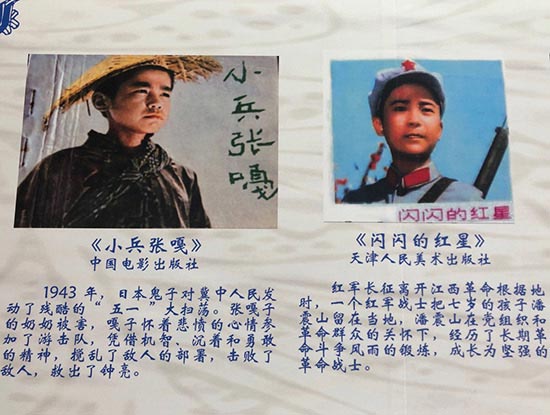 小兵张嘎
闪闪的红星
《小兵张嘎》
中国电影出版社
1943 年，日本鬼子对冀中人民发
动了残酷的“五一”大扫荡。张嘎子
的奶奶被害，嘎子怀着悲愤的心情参
加了游击队，凭借机智、沉着和勇敢
的精神，搅乱了敌人的部署，击败了
敌人，救出了钟亮。
《闪闪的红星》
天津人民美术出版社
红军长征离开江西革命根据地
时，一个红军战士把七岁的孩子潘
震山留在当地，潘震山在党组织和
革命群众的关怀下，经历了长期革
命斗争风雨的锻炼，成长为坚强的
革命战士。